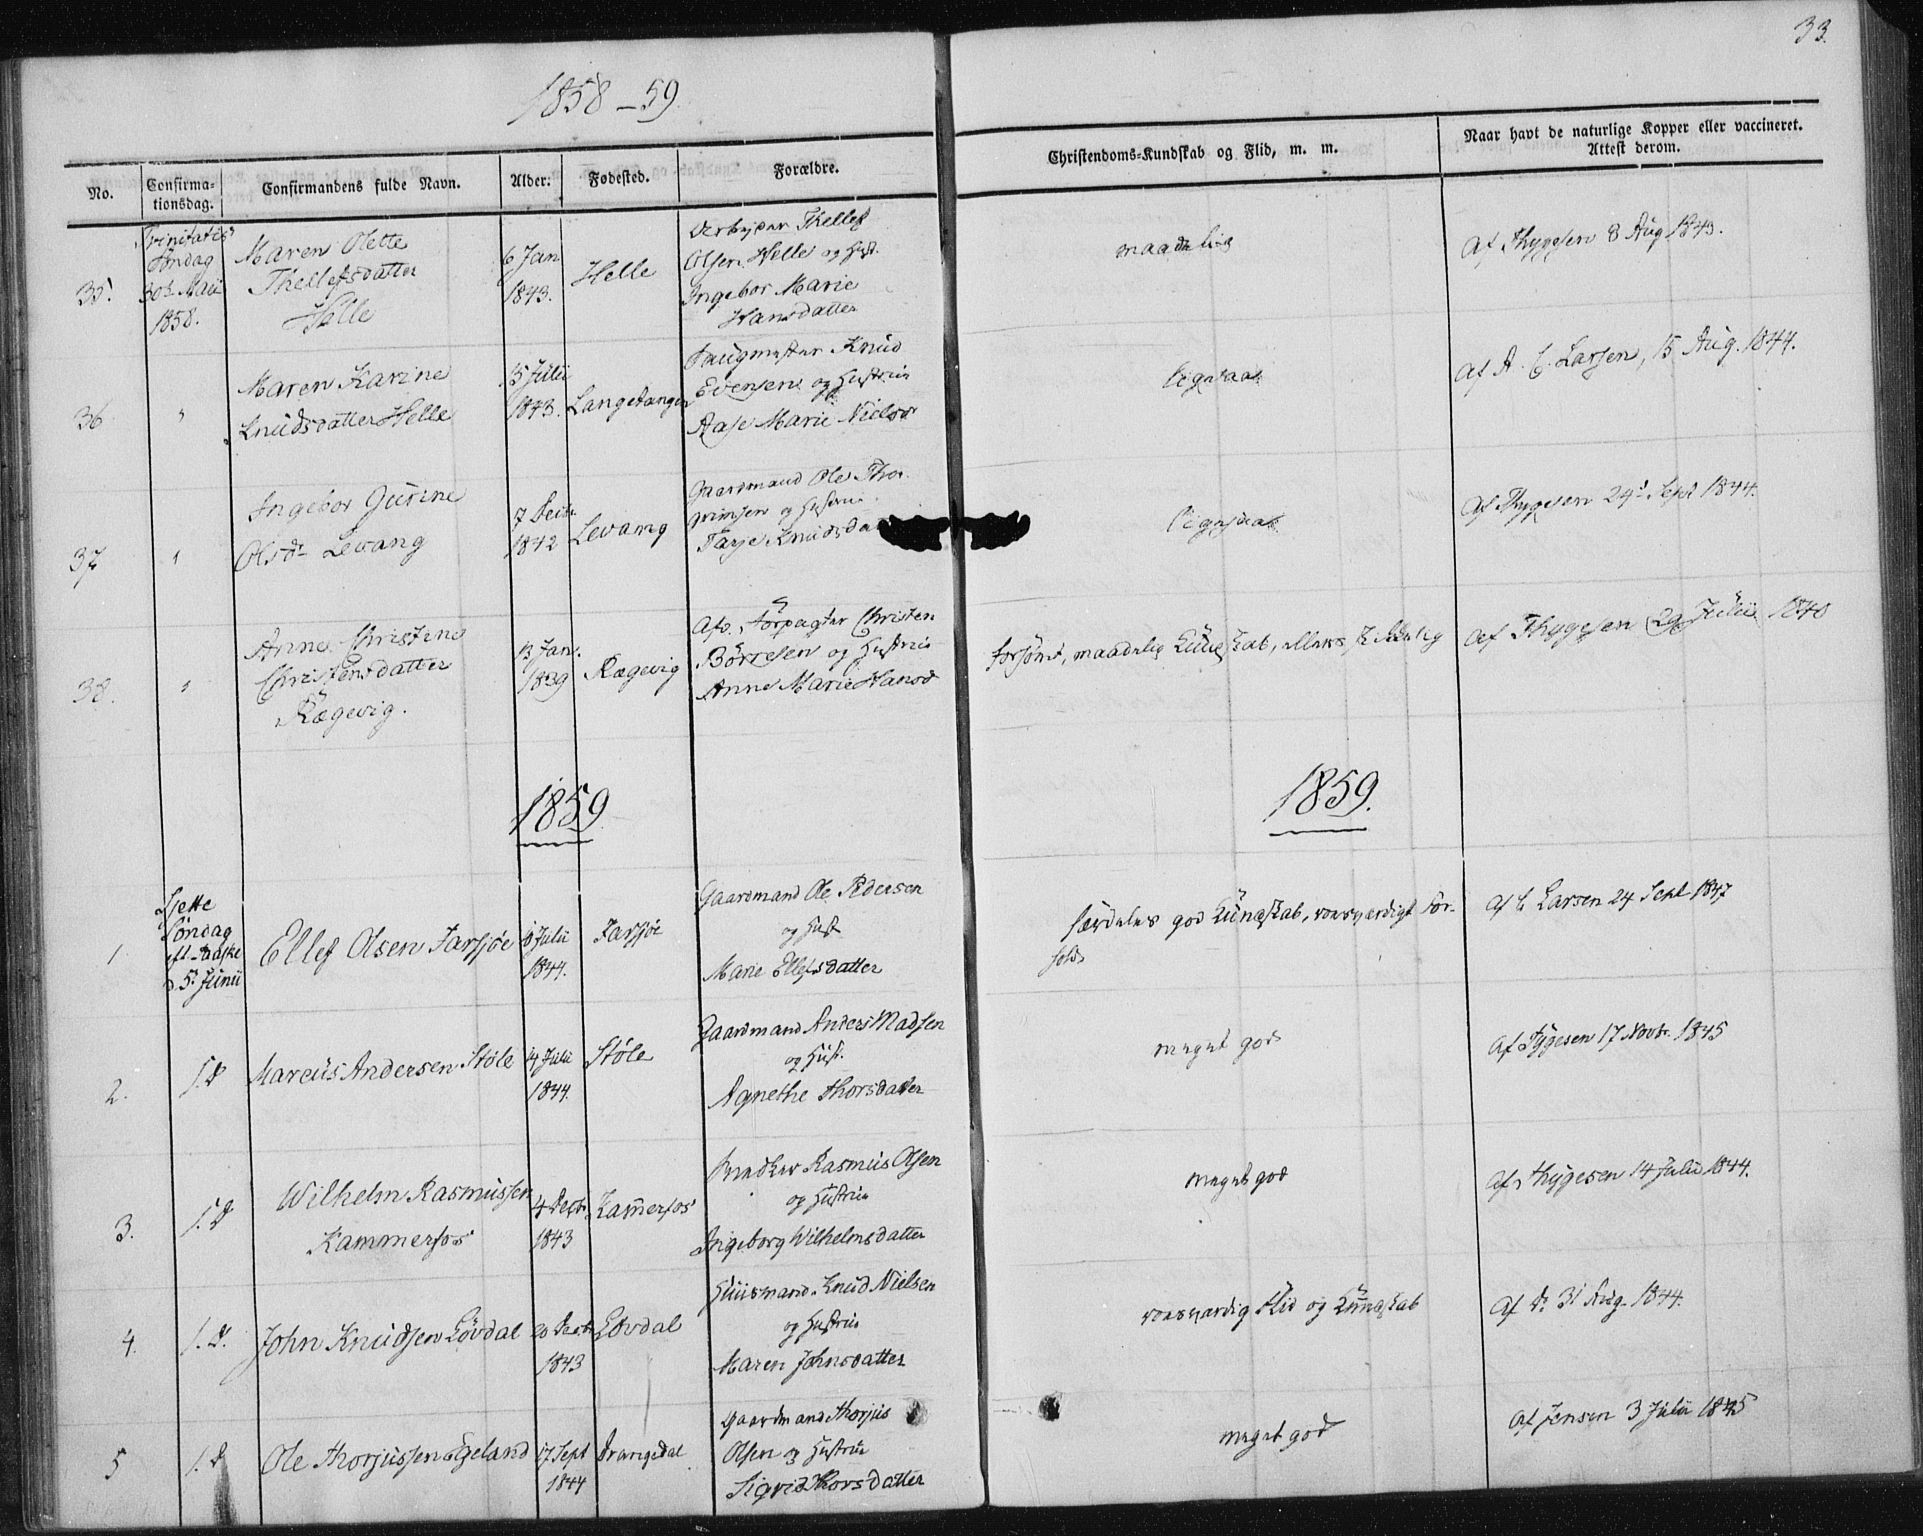 33.
1858–59.
No.
Confirma-
tionsdag.
Confirmandens fulde Navn.
Alder.
Fødested.
Forældre.
Christendoms-Kundskab og Flid, m. m.
Naar havt de naturlige Kopper eller vaccineret.
Attest derom.
35.
Trinitatis
Søndag
30te Mai
1858.
Maren Olette
Thellefsdatter
Helle
6 Jan
1843.
Helle
Arbejder Thellef
Olsen Helle og Hust.
Ingebor Marie
Hansdatter
maadelig
Af Thygesen 8 Aug 1843.
36
"
Maren Karine
Knudsdatter Helle
15 Julii
1843.
Langetangen
Evensen og Hustrue
Aase Marie Nielsd
ligesaa
Af A. C. Larsen, 15 Aug. 1844.
37
"
Ingebor Gurine
Olsdr Levang
7 Decbr
1842
Levang
Gaardmand Ole Thor-
grimsen og Hustrue
Tarje Knudsda
ligesaa
Af Thygesen 24d Sept 1844.
38.
"
Anne Christine
Christensdatter
Rægevig.
12 Jan.
1839
Rægevig
Afd. Forpagter Christen
Börresen og Hustrue
Anne Marie Hansd
forsömt, maadelig Kundskab, ellers
Af Thygesen 29 Julii 1840
1859
1859.
1
Sjette
Søndag
eft. Paaske
d. 5 Junii
Ellef Olsen Farsjøe
8 Julii
1844.
Farsjöe
Gaardmand Ole Pedersen
og Hust
Marie Ellefsdatter
særdeles god Kundskab, roesværdigt For-
hold
Af C Larsen 24 Sept 1847
2.
1. d
Marcus Andersen Støle
14 Julii
1844.
Støle
Gaardmand Anders Madsen
og Hust.
Agnethe Thorsdatter
meget god
Af Tygesen 17 Novbr. 1845
3.
1. d
Wilhelm Rasmussen
Kammerfos
4 Decbr.
1843
Kam̄erfos
Snedker Rasmus Olsen
og Hustrue
Ingeborg Wilhelmsdatter
meget god
Af Thygesen 14 Julii 1844.
4.
1. d.
John Knudsen Lövdal
20 Decbr
1843
Lövdal
Huusmand Knud Nielsen
og Hustrue
Maren Johnsdatter
roesværdig Flid og Kundskab
Af do 31 Aug. 1844.
5
1. d
Ole Thorjussen Egeland
17 Sept
1844
Drangedal
Gaardmand Thorjus
Olsen og Hustrue
Sigrid Thorsdatter
meget god
Af Jensen 3 Julii 1845